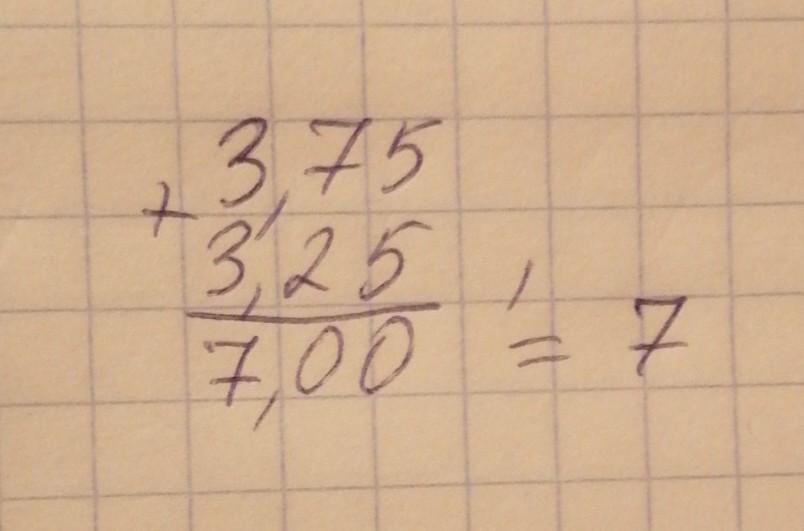 3,75
+
3,25
7,00 = 7